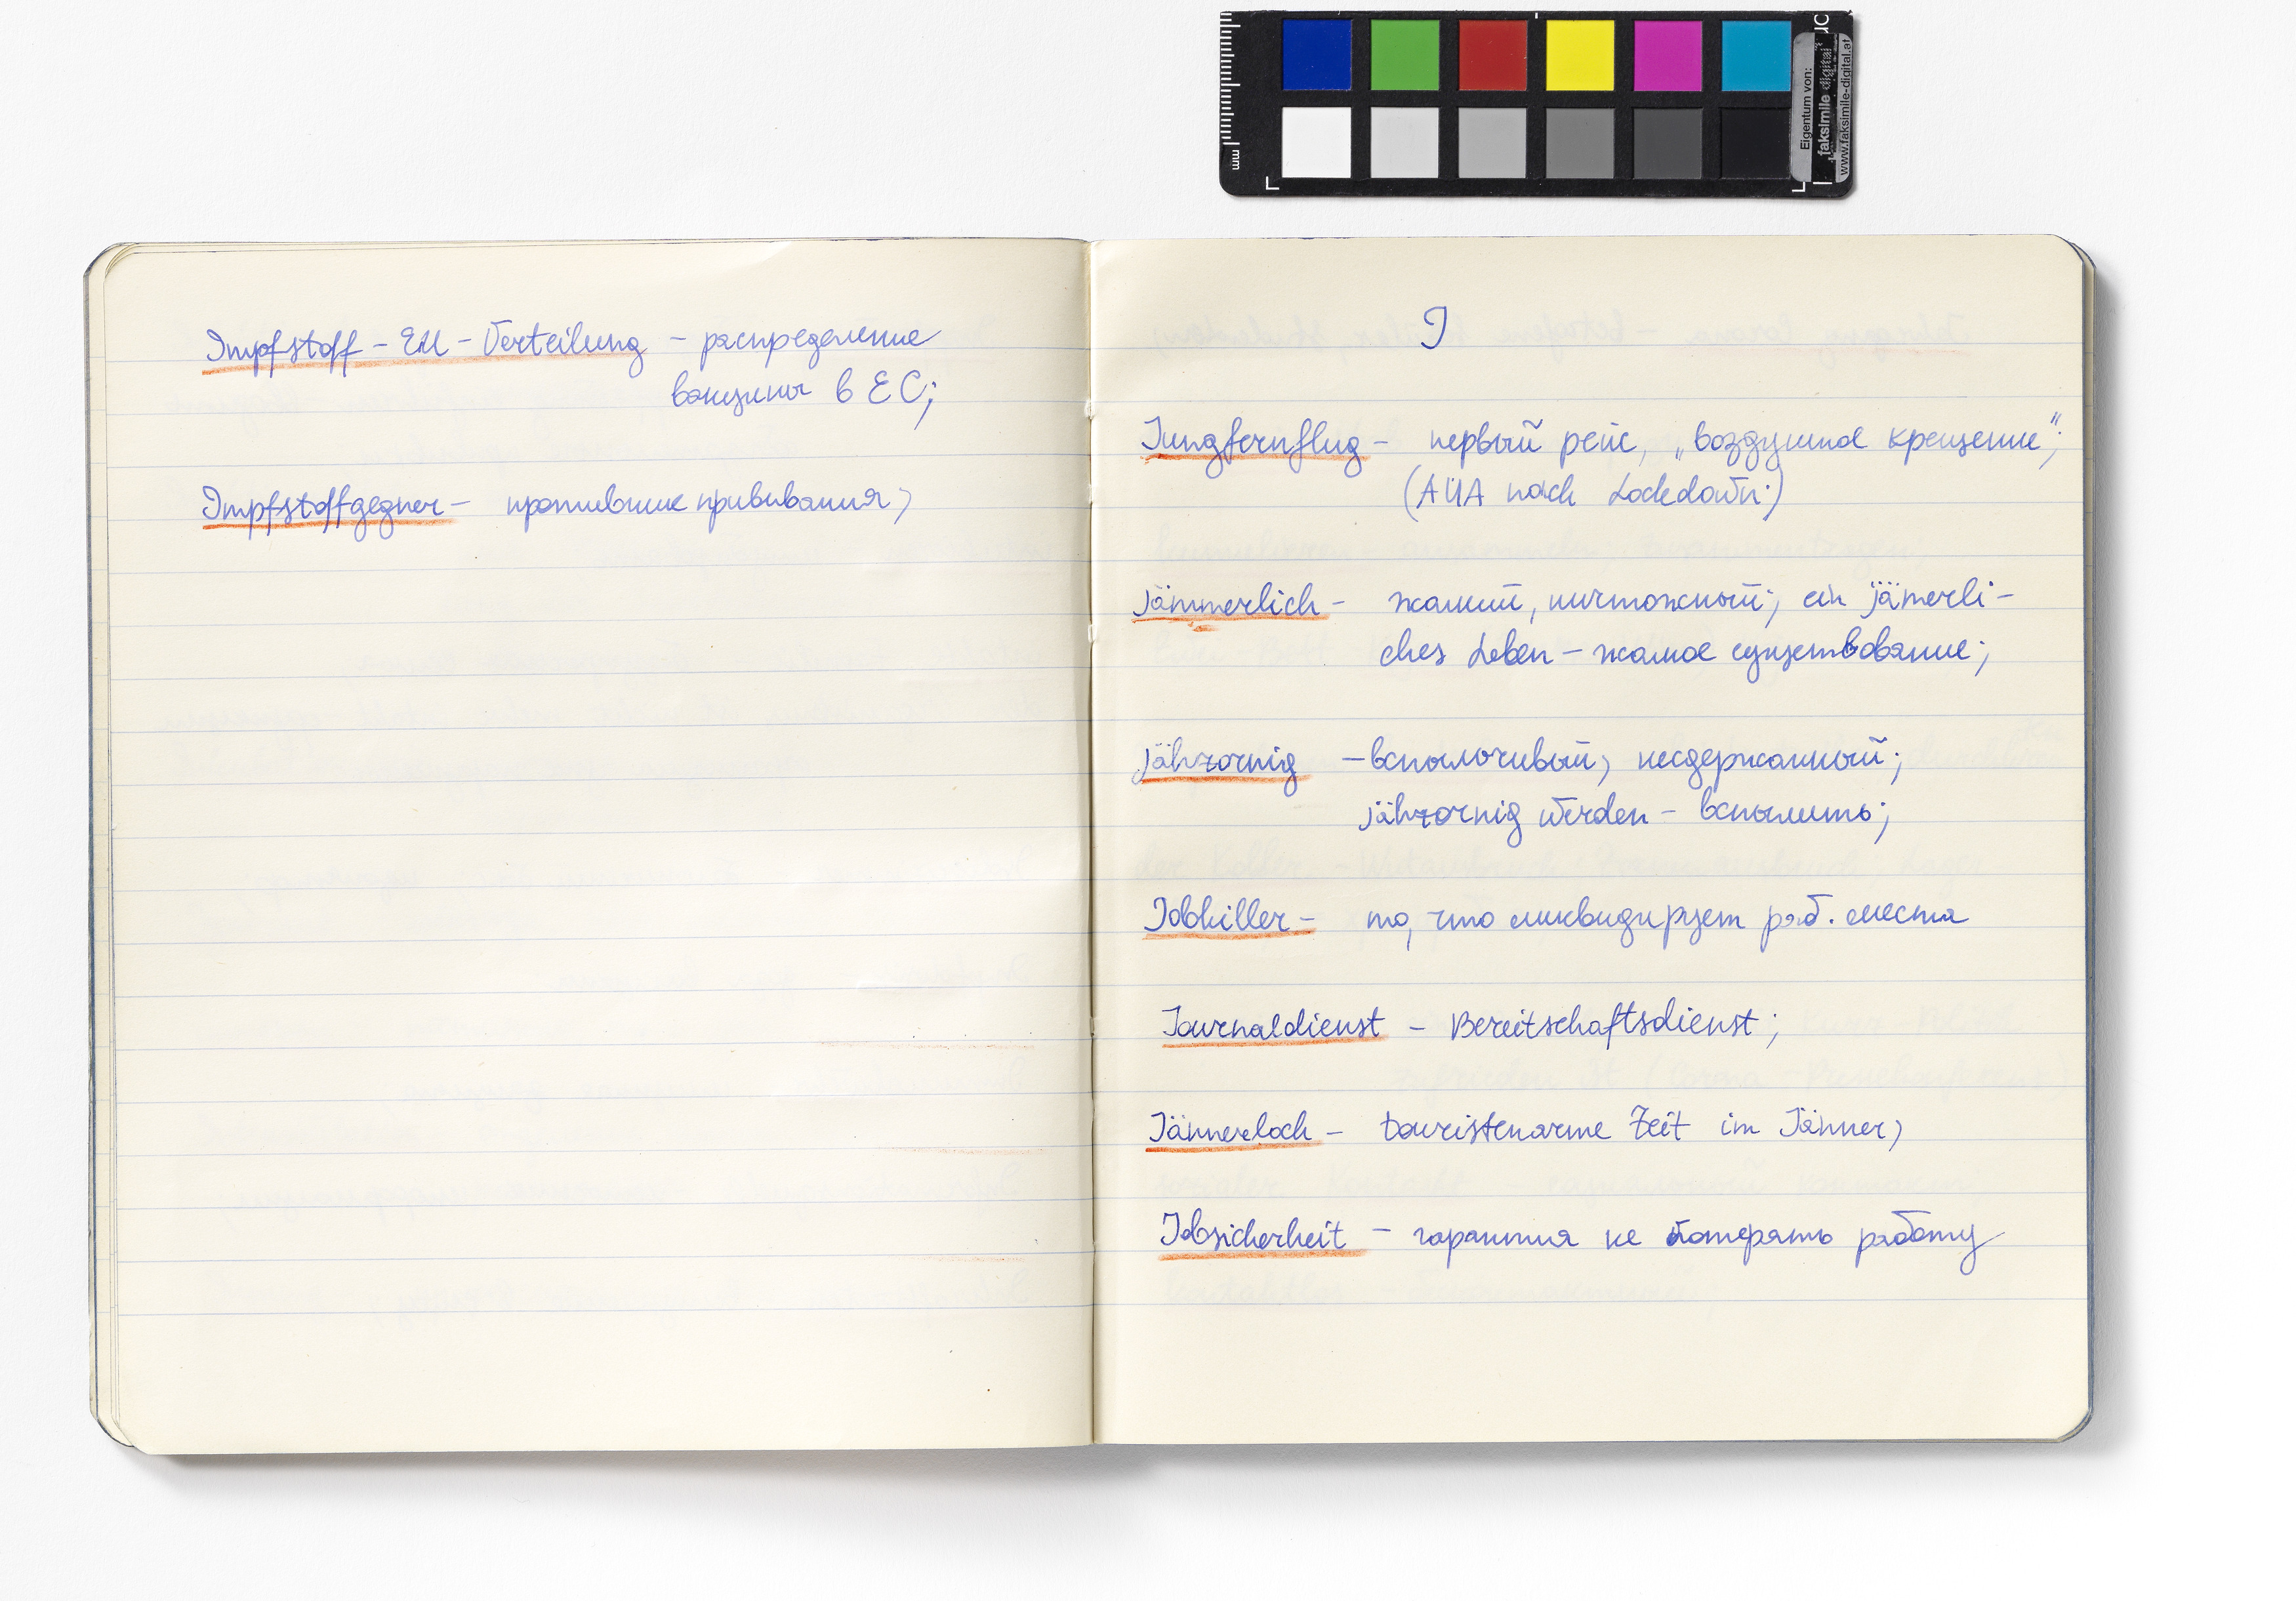 Impfstoff-EU-Verteilung - распределение
вакцины в ЕС;
Impfstoffgegner - противник прививания;
J
Jungfernflug - первый рейс, „воздушное крещение“;
(AUA nach Lockdown)
jämmerlich - жалкий, ничтожный; ein jämerli-
ches Leben - жалкое существование;
jähzornig - вспыльчивый, несдержанный;
jähzornig werden - вспылить;
Jobkiller - то, что ликвидирует раб. места
Journaldienst - Bereitschaftsdienst;
Jännerloch - touristenarme Zeit im Jänner;
Jobsicherheit - гарантия не потерять работу
mm
Eigentum von:
faksimile digital
www.faksimile-digital.at